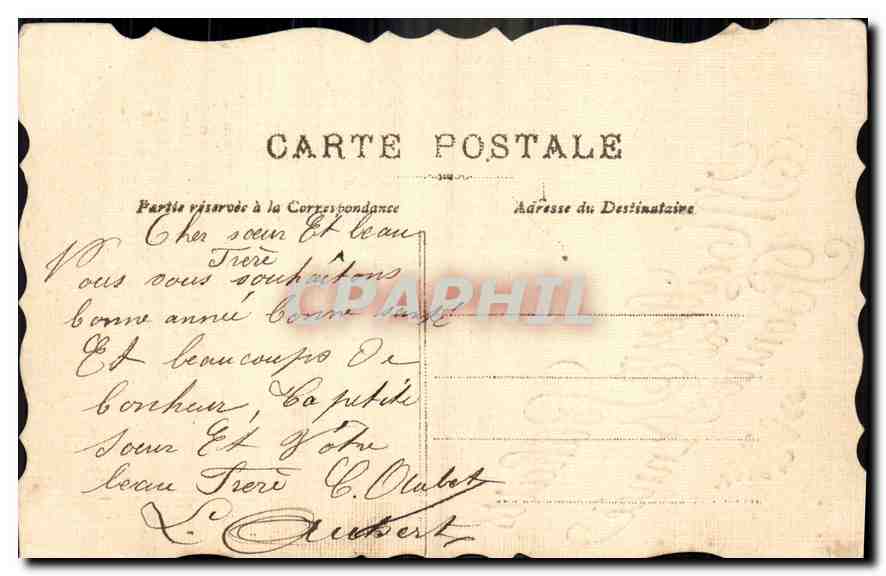 CARTE POSTALE
Partie réservée à la Correspondance
Adresse du Destinataire
Cher sœur Et beau
Frerè
Vous vous souhaîtons
bonne année bonne santé
Et beaucoups de
bonheur, ta petite
sœur Et Vôtre
beau Frerè C.
L. Aubert
CPAPHIL